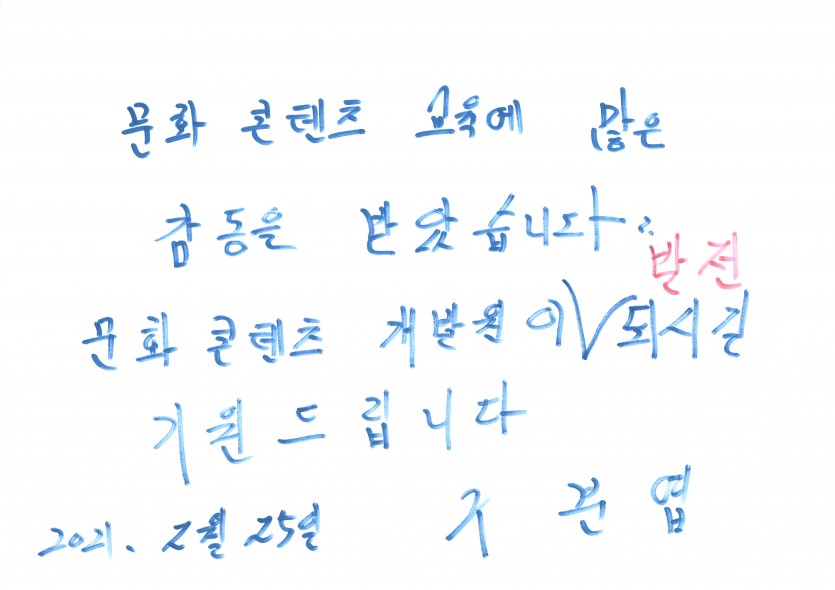 문화 콘텐츠 교육에 많은
감동을 받았습니다.
발전
문화 콘텐츠 개발원이 되시길
기원드립니다
2021. 2월 25일 구본엽